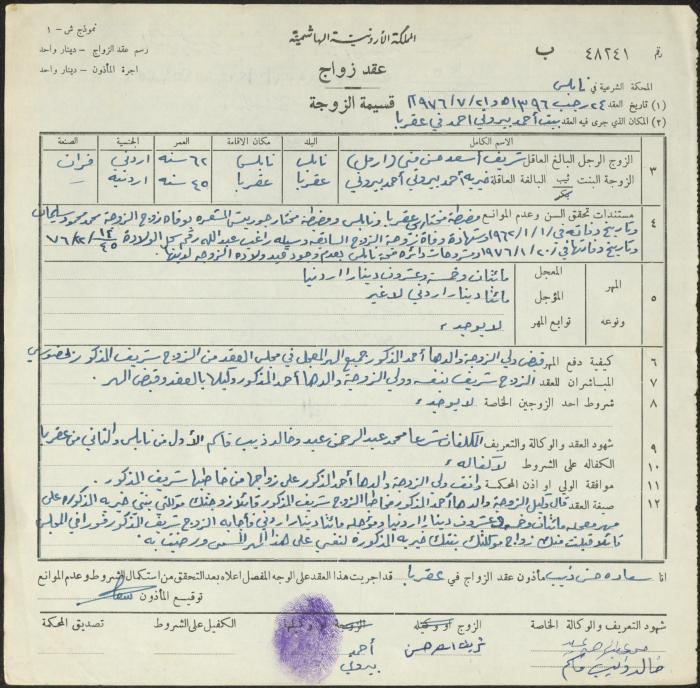 نموذج ش - ١
المملكة الأردنية الهاشمية
رسم عقد الزواج - دينار واحد
رقم ٤٨٢٤١ ب
اجرة المأذون - دينار واحد
عقد زواج
المحكمة الشرعية في نابلس
قسيمة الزوجة
(١) تاريخ العقد ٢٤ رجب ١٣٩٦ و ٢١/٧/١٩٧٦
(٢) المكان الذي جرى فيه العقد بيت أحمد بيروتي أحمد في عقربا
الاسم الكامل البلد مكان الاقامة العمر الجنسية الصنعة
٣ الزوج الرجل البالغ العاقل شريف أسعد حسن (ارمل) نابلس نابلس ٦٢ سنه اردني فران
الزوجة البنت ثيب البالغة العاقلة خيريه أحمد بيروتي أحمد بيروتي عقربا عقربا ٤٥ سنه اردنية
بكر
٤ مستندات تحقق السن وعدم الموانع مضبطة مختاري عقربا ونابلس ومضبطة مختار بوفاة زوج الزوجة محمد محمود سليمان
وتاريخ وفاته في ١/١/١٩٦٢ وشهادة وفاة زوجة الزوج السابقة وسيله راغب عبدالله رقم سجل الولادة ٧٦/٢/
وتاريخ وفاتها في ٢٠/١/١٩٧٦ دائرة صحة نابلس بعدم وجود قيد ولاده الزوجه لديها
المعجل مائتان وخمسة وعشرون دينارا اردنيا
٥ المهر المؤجل مائتا دينار اردني لا غير
ونوعه توابع المهر لا يوجد
٦ كيفية دفع المهر قبض ولي الزوجة والدها أحمد المذكور جميع المهر المعجل في مجلس العقد من الزوج شريف المذكور
٧ المباشران للعقد الزوج شريف بنفسه وولي الزوجة والدها أحمد المذكور وكيلها بالعقد وقبض المهر
٨ شروط احد الزوجين الخاصة لا يوجد
٩ شهود العقد والوكالة والتعريف المكلفان شرعا محمد عبد الرحمن عيد وخالد ذيب قاسم الأول من نابلس والثاني من عقربا
١٠ الكفالة على الشروط لا كفاله
١١ موافقة الولي او اذن المحكمة وافق ولي الزوجة والدها أحمد المذكور على زواجها من خاطبها شريف المذكور
١٢ صيغة العقد قال وكيل الزوجة والدها أحمد المذكور مخاطبا الزوج شريف المذكور قائلا زوجتك موكلتي بنتي خيريه المذكورة على
مهر معجله مائتان وخمسة وعشرون دينارا اردنيا ومؤجله مائتا دينار اردني وأجابه الزوج شريف المذكور فورا في المجلس
قائلا قبلت منك زواج موكلتك بنتك خيريه المذكورة لنفسي على هذا المهر المسمى ورضيت به
انا سعاده حسن ذيب مأذون عقد الزواج في عقربا قد اجريت هذا العقد على الوجه المفصل اعلاه بعد التحقق من استكمال الشروط وعدم الموانع
توقيع المأذون
شهود التعريف والوكالة الخاصة الزوج او وكيله الزوجة او وكيلها الكفيل على الشروط تصديق المحكمة
شريف اسعد حسن
أحمد
بيروتي
خالد ذيب قاسم